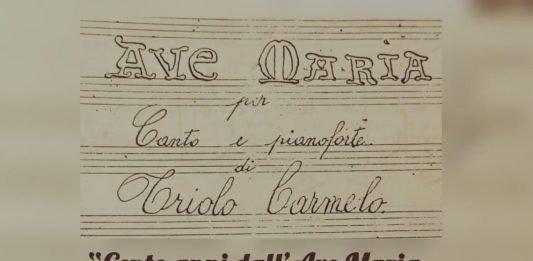 AVE MARIA
per
Canto e pianoforte
di
Triolo Carmelo.
"Cento anni dall'Ave Maria